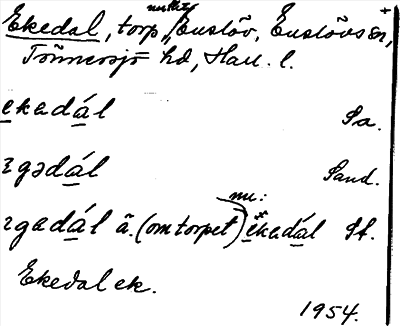 Ekedal, torp, Enslöv, Enslövs sn,
Tönnersjö hd, Hall. l.
ekedál Sa.
ɛgədál Sand.
nu:
ɛgadál ä. (om torpet) ekadál St.
Ekedal ek.
1954.